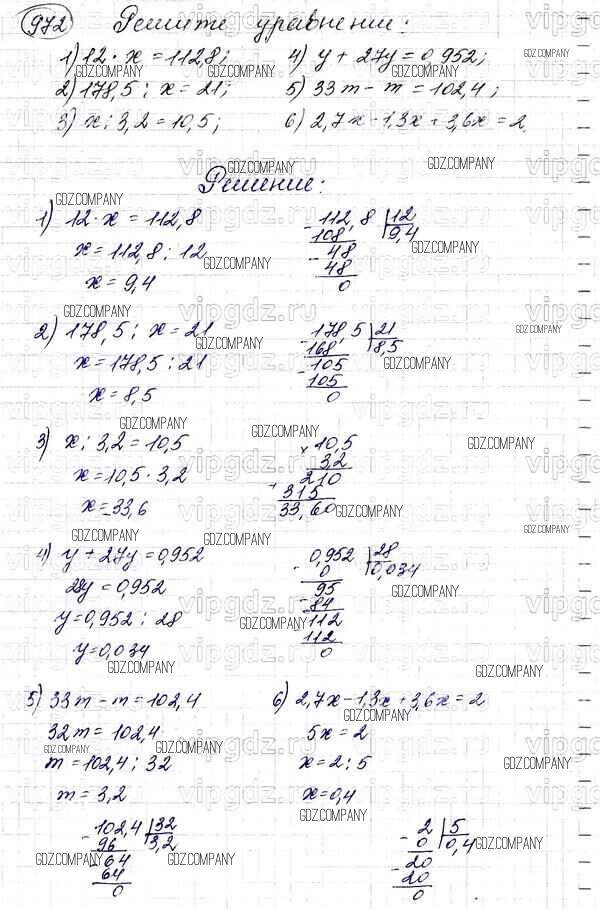 972 Решите уравнение:
1) 12 · x = 112,8; 4) y + 27y = 0,952;
2) 178,5 : x = 21; 5) 33m - m = 102,4;
3) x : 3,2 = 10,5; 6) 2,7x - 1,3x + 3,6x = 2
Решение:
1) 12 · x = 112,8
x = 112,8 : 12
x = 9,4
- 112,8 | 12
108 9,4
- 48
48
0
2) 178,5 : x = 21
x = 178,5 : 21
x = 8,5
- 178,5 | 21
168 8,5
- 105
105
0
3) x : 3,2 = 10,5
x = 10,5 · 3,2
x = 33,6
× 10,5
3,2
+ 210
315
33,60
4) y + 27y = 0,952
28y = 0,952
y = 0,952 : 28
y = 0,034
- 0,952 | 28
0 0,034
- 95
84
- 112
112
0
5) 33m - m = 102,4
32m = 102,4
m = 102,4 : 32
m = 3,2
- 102,4 | 32
96 3,2
- 64
64
0
6) 2,7x - 1,3x + 3,6x = 2
5x = 2
x = 2 : 5
x = 0,4
- 2 | 5
0 0,4
- 20
20
0
GDZ.COMPANY
vipgdz.ru